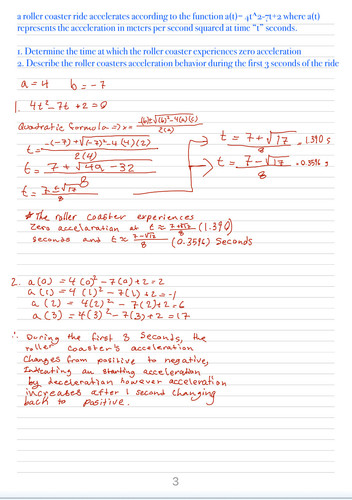 a roller coaster ride accelerates according to the function a(t)= 4t^2-7t+2 where a(t)
represents the acceleration in meters per second squared at time "t" seconds.
1. Determine the time at which the roller coaster experiences zero acceleration
2. Describe the roller coasters acceleration behavior during the first 3 seconds of the ride
a = 4 b = -7
1. 4t²-7t +2 = 0
Quadratic formula => x= -(b)±√(b)²-4(a)(c) / 2(a)
t= -(-7)+√(-7)²-4(4)(2) / 2(4)
t = 7 ± √49-32 / 8
t = 7±√17 / 8
t = 7+√17 / 8 = 1.390 s
t = 7-√17 / 8 = 0.3596 s
* The roller coaster experiences
zero accelaration at t ≈ 7+√17 / 8 (1.390)
seconds and t≈ 7-√17 / 8 (0.3596) Seconds
2. a(0) = 4(0)² - 7(0)+2 = 2
a(1) = 4(1)² - 7(1)+2 = -1
a(2) = 4(2)² - 7(2)+2 = 6
a(3) = 4(3)² - 7(3)+2 = 17
∴ During the first 3 Seconds, the
roller coaster's acceleration
Changes from positive to negative,
Indicating an starting acceleration
by deceleration however acceleration
increases after 1 second changing
back to positive.
3